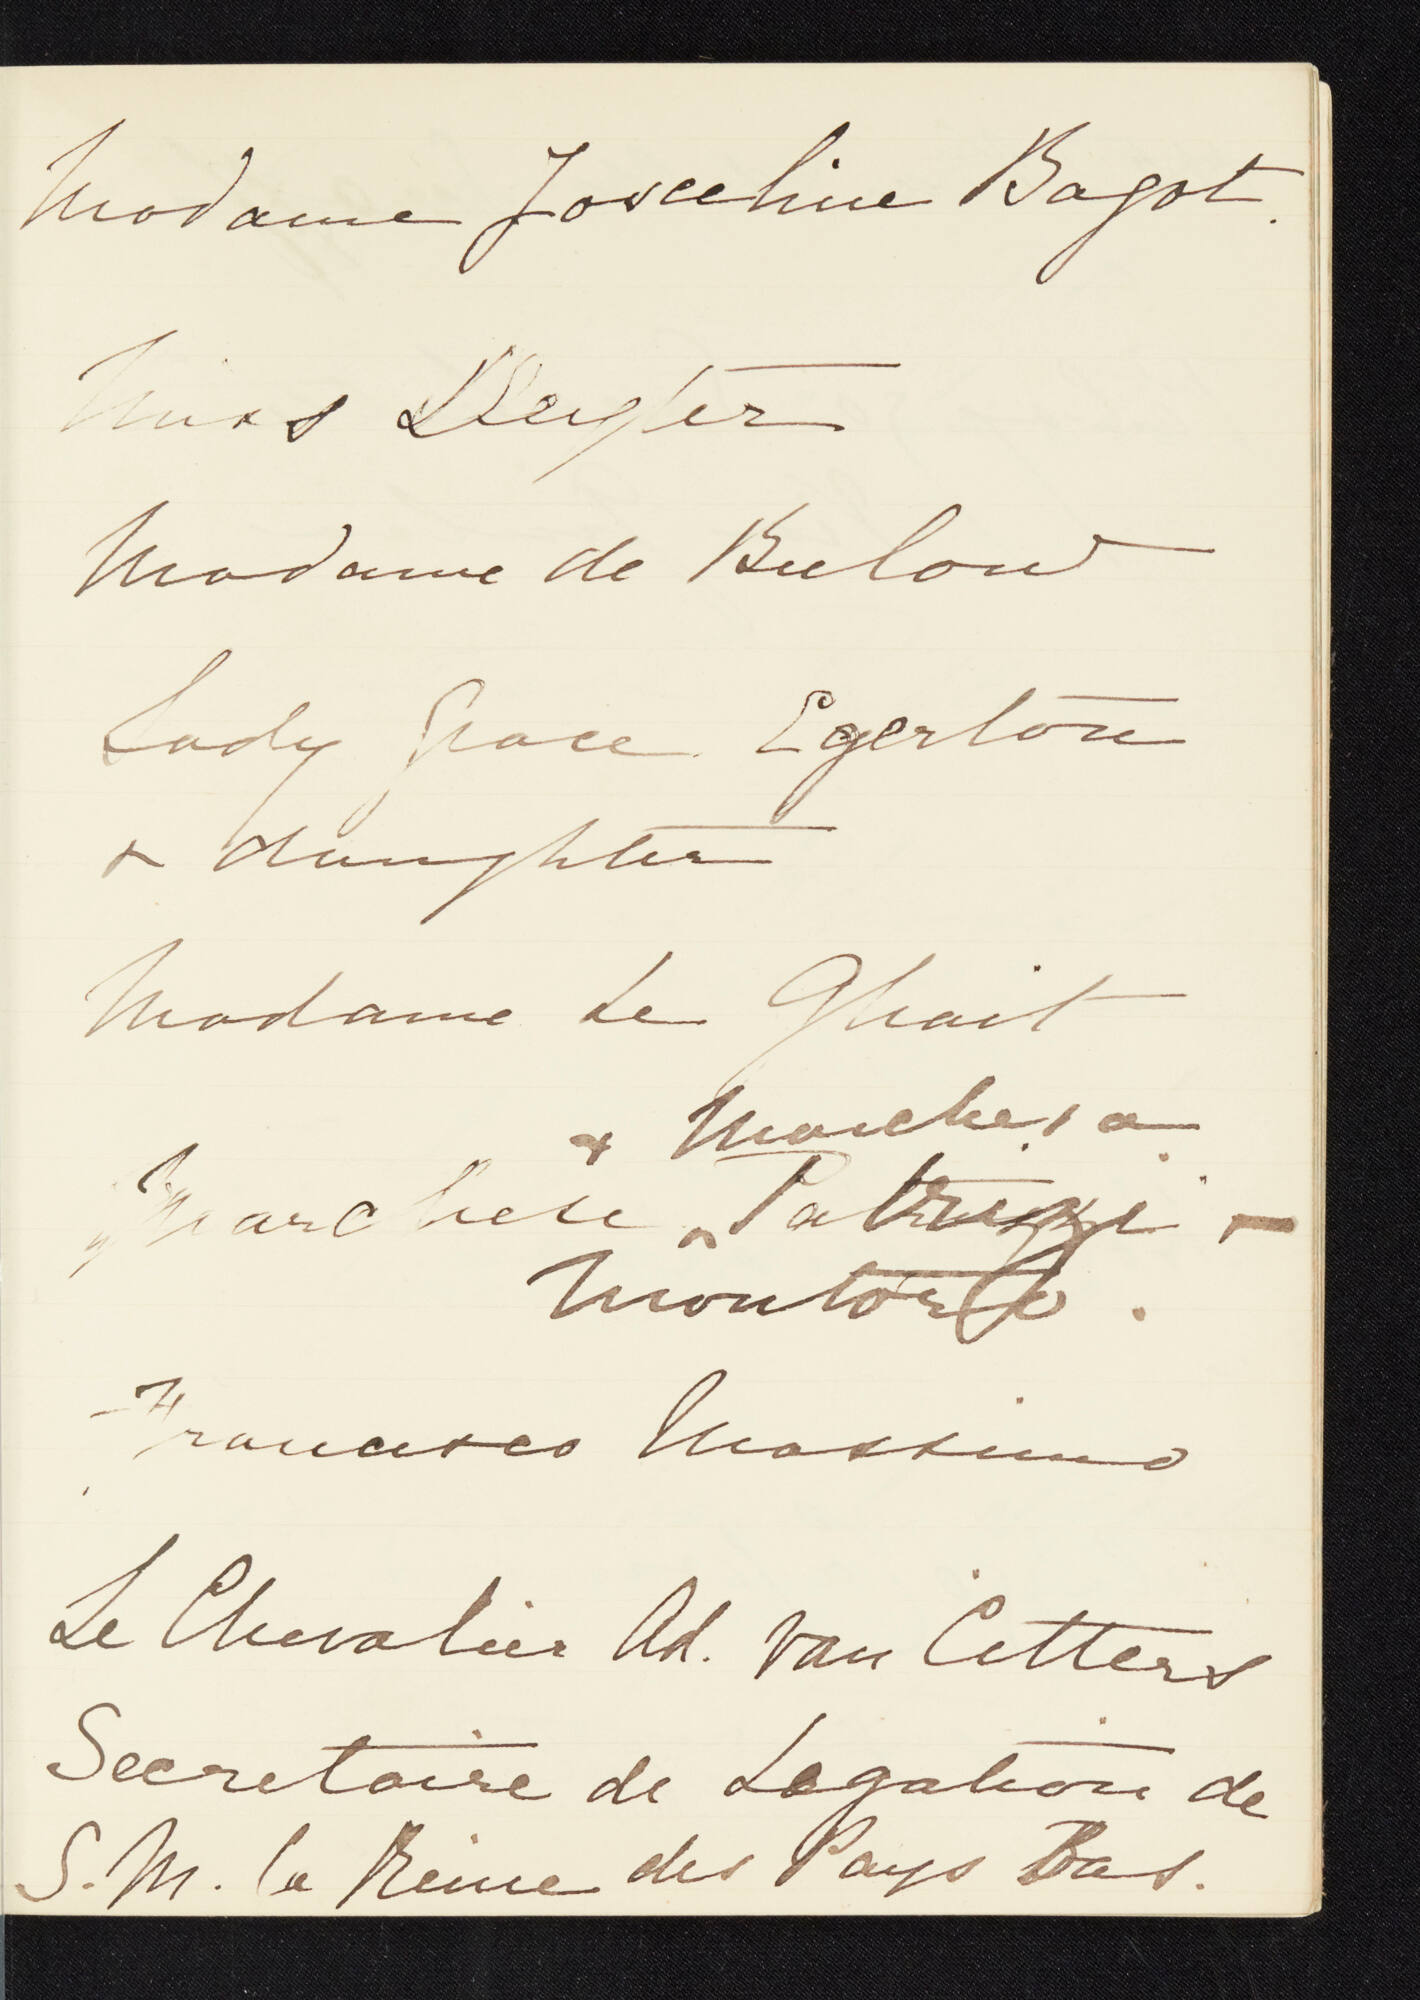 Madame Josceline Bagot.
Miss
Madame de Bulow
Lady Grace Egerton
& daughter
Madame Le Ghait
& Marchesa
Marchese ^ Patrizi -
Montoro.
Francesco Massimo
Le Chevalier Ad. van Citters
Secretaire de Legation de
S. M. la Reine des Pays Bas.